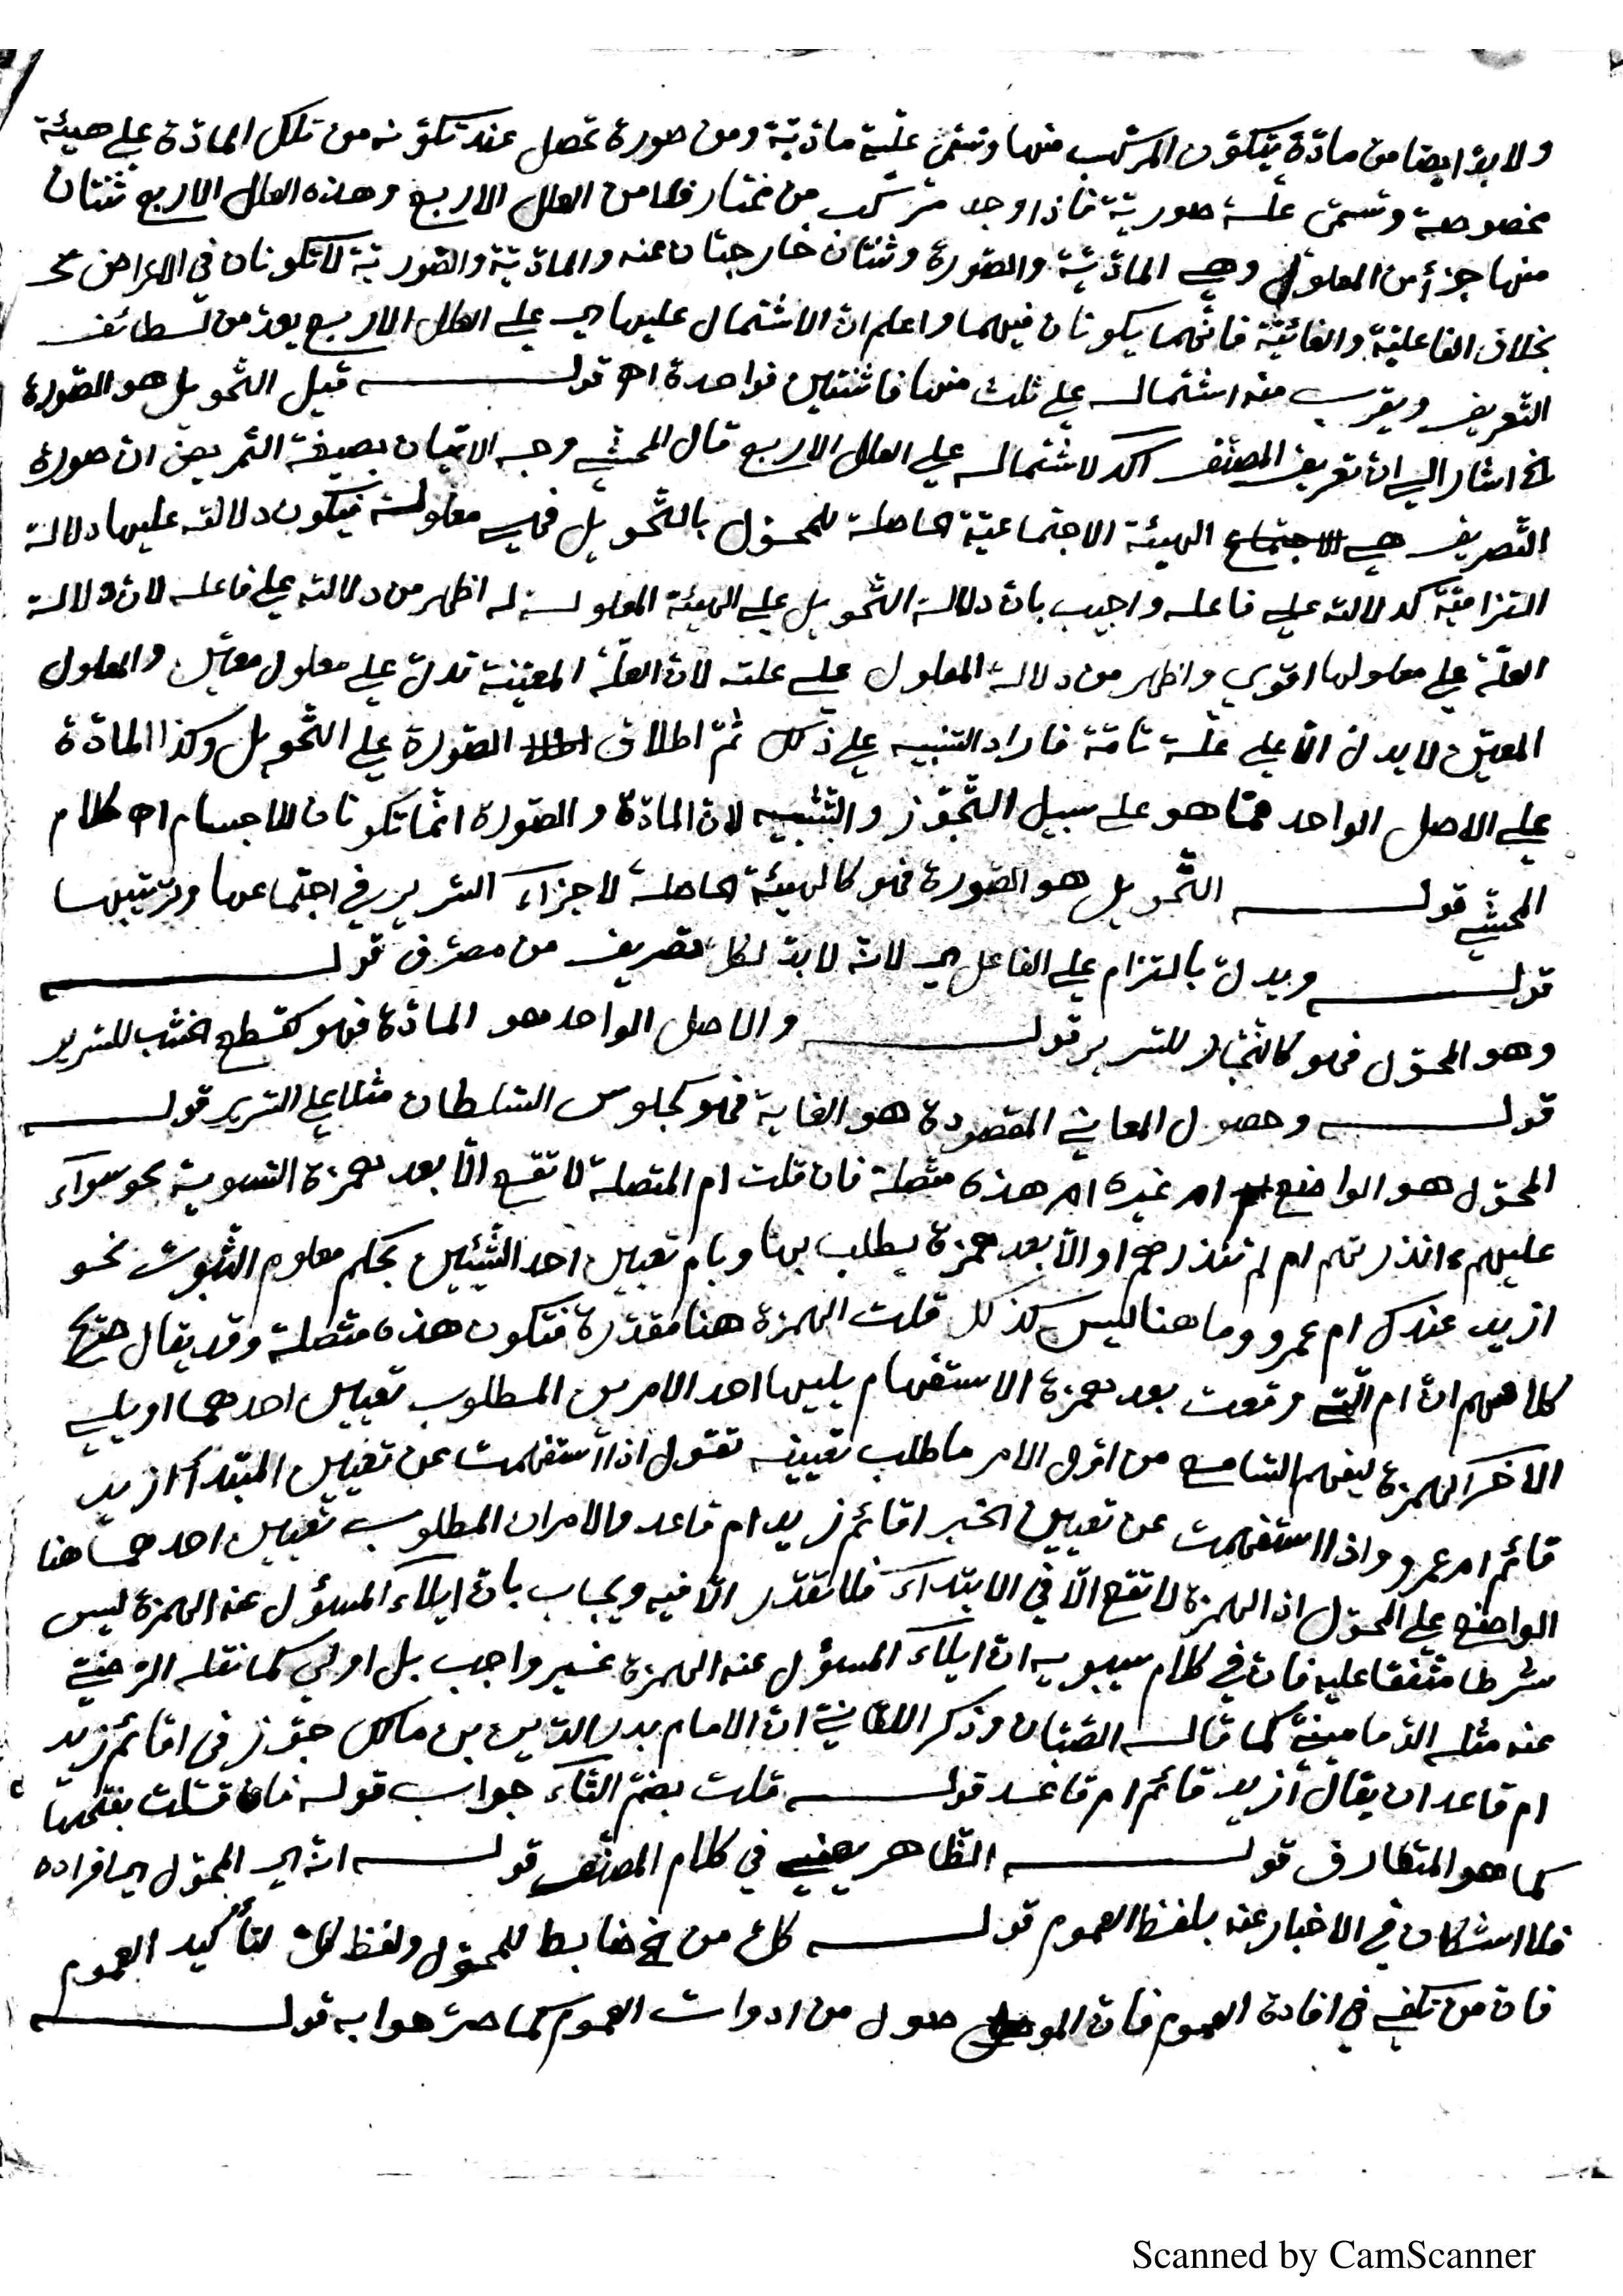 ولا بدّ ايضا من مادّة يتكوّن المركّب منها وتسمّى علّية مادّيّة ومن صورة تحصل عند تكوّنه من تلك المادّة على هيئة
مخصوصة وتسمّى علّة صوريّة فاذا وجد مركّب من مختار فلا من العلل الاربع وهذه العلل الاربع ثنتان
منها جزأ من المعلول وهي المادّيّة والصّورة وثنتان خارجتان عنه والمادّيّة والصّوريّة لا تكونان في الاعراض
بخلاف الفاعليّة والغائيّة فانّهما يكونان فيهما واعلم انّ الاشتمال عليها اي على العلل الاربع يعدّ من لطائف
التّعريف ويقرب منه اشتماله على ثلث منها فاثنتين فواحدة اه قوله قيل التّحويل هو الصّورة
الخ اشار الى انّ تعريف المصنّف اكد لاشتماله على العلل الاربع قال المحشّي وجه الاتيان بصيغة التّمريض ان صورة
التّصريف هي الهيئة الاجتماعيّة الحاصلة للمحوّل بالتّحويل فهي معلولة فيكون دلالته عليها دلالة
التزاميّة كدلالته على فاعله واجيب بانّ دلالة التّحويل على الهيئة المعلولة له اظهر من دلالته على فاعله لانّ دلالة
العلّة على معلولها اقوى واظهر من دلالة المعلول على علته لانّ العلّة المعيّنة تدلّ على معلول معيّن والمعلول
المعيّن لا يدلّ الّا على علّة تامّة فاراد التنبيه على ذلك ثمّ اطلاق الصّورة على التّحويل وكذا المادّة
على الاصل الواحد ممّا هو على سبيل التّجوّز والتّشبيه لانّ المادّة والصّورة انّما تكونان للاجسام اه كلام
المحشّي قوله التّحويل هو الصّورة فهو كالهيئة الحاصلة لاجزاء السّرير في اجتماعها وترتيبها
قوله ويدلّ بالتزام على الفاعل اي لانّه لا بدّ لكلّ تصريف من مصرّف قوله
وهو المحوّل فهو كالنّجّار للسّرير قوله والاصل الواحد هو المادّة فهو كقطع الخشب للسّرير
قوله وحصول المعاني المقصودة هو الغاية فهو كجلوس السّلطان مثلا على السّرير قوله
المحوّل هو الواضع ام غيره ام هذه متّصلة فان قلت ام المتصلة لا تقع الّا بعد همزة التسوية نحو سواء
عليهم ءانذرتهم ام لم تنذرهم او الّا بعد همزة يطلب بها وبام تعيين احد الشّيئين بحكم معلوم الثّبوت نحو
ازيد عندك ام عمرو وما هنا ليس كذلك قلت الهمزة هنا مقدّرة فتكون هذه متّصلة وقد يقال صريح
كلامهم انّ ام الّتي وقعت بعد همزة الاستفهام يليها احد الامرين المطلوب تعيين احدهما ويلي
الاخر الهمزة ليفهم السّامع من اوّل الامر ما طلب تعيينه تقول اذا استفهمت عن تعيين المبتدأ ازيد
قائم ام عمرو واذا استفهمت عن تعيين الخبر اقائم زيد ام قاعد والامران المطلوب تعيين احدهما هنا
الواضع على المحوّل اذ الهمزة لا تقع الّا في الابتداء فلا تقدّر الّا فيه ويجاب بانّ ايلاء المسؤل عنه الهمزة ليس
شرطا متّفقا عليه فانّ في كلام سيبويه انّ ايلاء المسؤل عنه الهمزة غير واجب بل اولى كما نقله الرّضيّ
عنه مثله الدّمامينيّ كما قاله الصّبّان وذكر اللقاني انّ الامام بدر الدّين بن مالك جوّز في اقائم زيد
ام قاعد ان يقال أزيد قائم ام قاعد قوله قلت بضمّ التّاء جواب قوله فان قلت بفتحها
كما هو المتعارف قوله الظّاهر يعني في كلام المصنّف قوله انّه اي المحوّل اي افراده
فلا اشكال في الاخبار عنه بلفظ العموم قوله كلّ من الخ ضابط للمحوّل ولفظ كلّ لتأكيد العموم
فانّ من تكفي في افادة العموم فانّ الموصول من ادوات العموم كما صرّحوا به قوله
Scanned by CamScanner